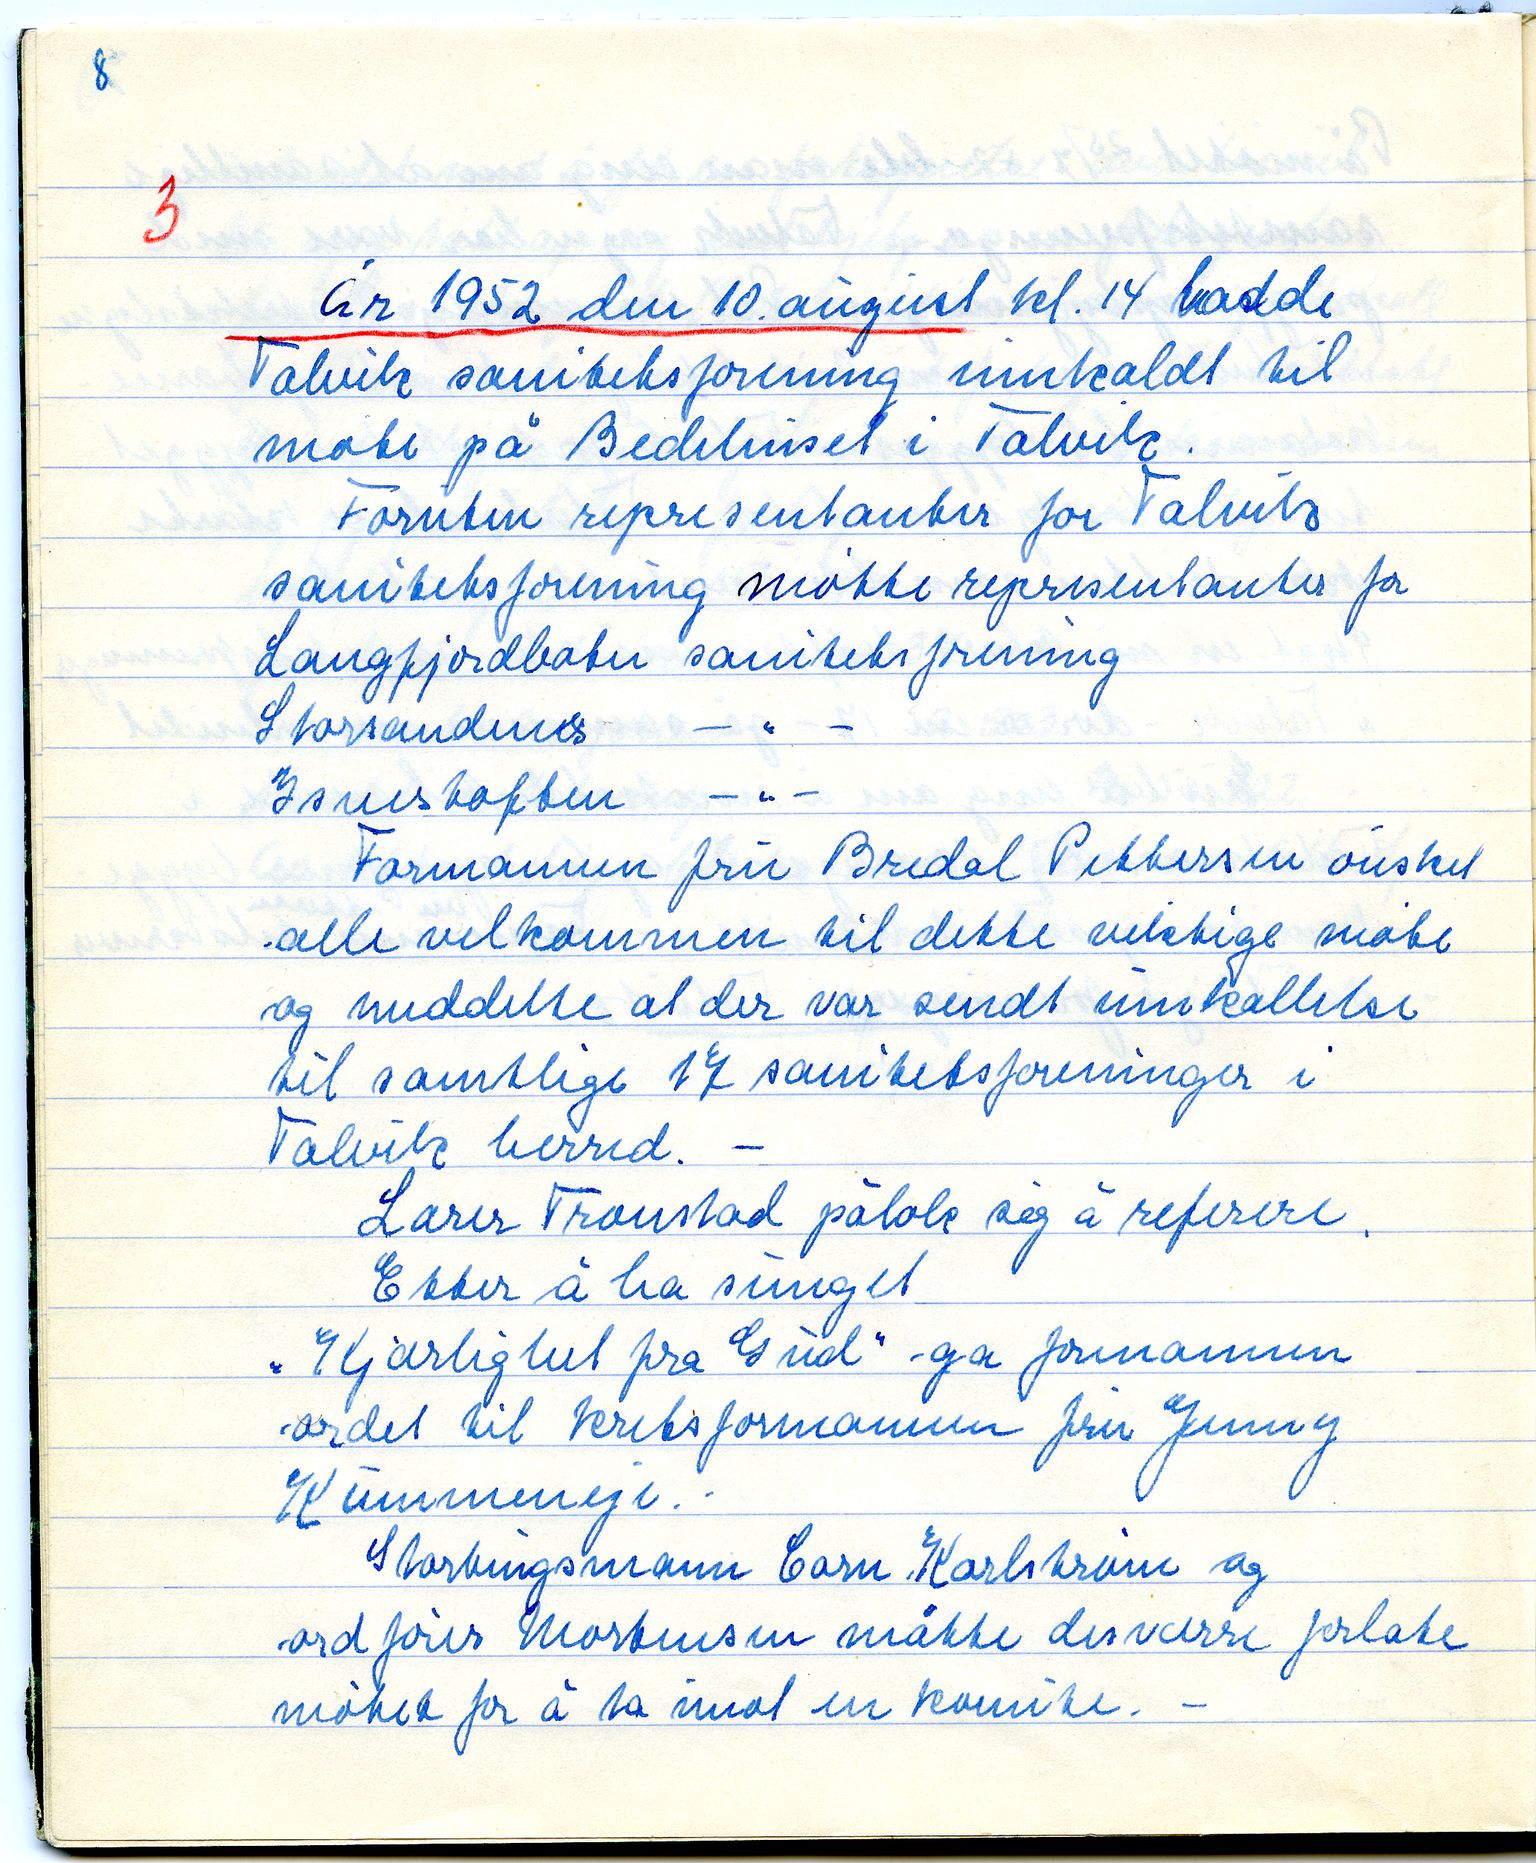 8
3
År 1952 den 10. august kl. 14 hadde
Talvik sanitetsforening innkaldt til
møte på Bedehuset i Talvik.
Foruten representanter for Talvik
sanitetsforening møtte representanter for
Langfjordbotn sanitetsforening
Storsandnes — " —
Isnestoften — " —
Formannen fru Bredal Pettersen ønsket
alle velkommen til dette viktige møte
og meddelte at der var sendt innkallelse
til samtlige 17 sanitetsforeninger i
Talvik herred. —
Lærer Tronstad påtok sig å referere.
Etter å ha sunget
"Kjærlighet fra Gud" ga formannen
ordet til kretsformannen fru Jenny
Kummeneje.
Stortingsmann Corn. Karlstrøm og
ordfører Mortensen måtte desværre forlate
møtet for å ta imot en komite. —